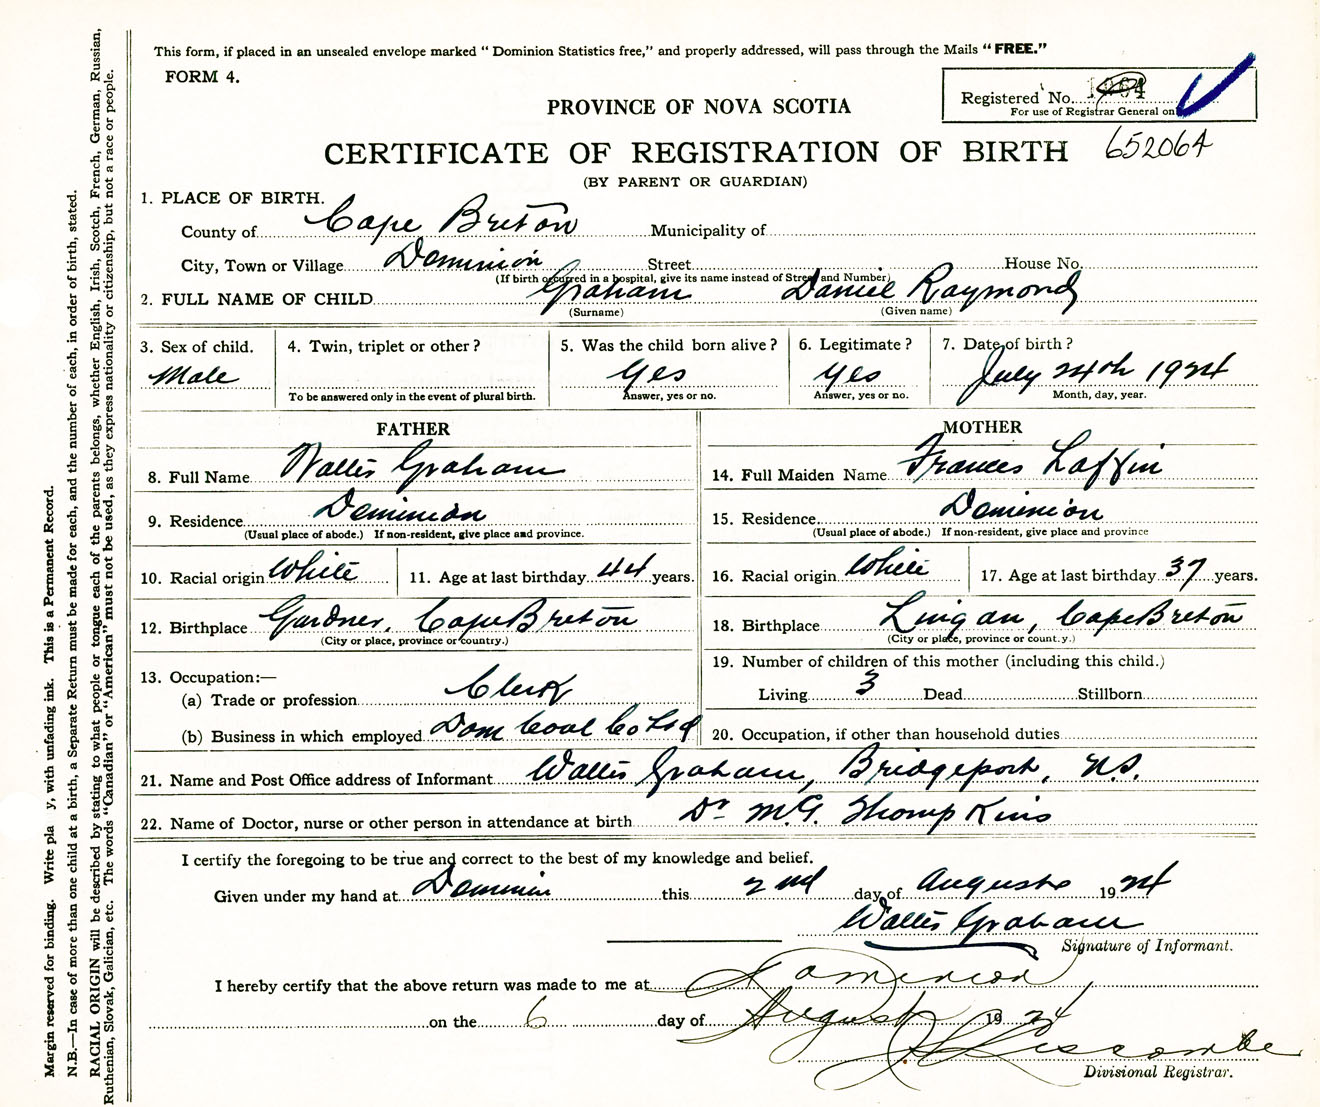 This form, if placed in an unsealed envelope marked " Dominion Statistics free," and properly addressed, will pass through the Mails " FREE."
FORM 4.
Registered No.
For use of Registrar General on
PROVINCE OF NOVA SCOTIA
CERTIFICATE OF REGISTRATION OF BIRTH 652064
(BY PARENT OR GUARDIAN)
1. PLACE OF BIRTH.
County of Cape Breton Municipality of
City, Town or Village Dominion Street House No.
(If birth occurred in a hospital, give its name instead of Street and Number)
2. FULL NAME OF CHILD Graham Daniel Raymond
(Surname) (Given name)
3. Sex of child. 4. Twin, triplet or other ? 5. Was the child born alive ? 6. Legitimate ? 7. Date of birth ?
Male Yes Yes July 24th 1924
To be answered only in the event of plural birth. Answer, yes or no. Answer, yes or no. Month, day, year.
FATHER
8. Full Name Walter Graham
9. Residence Dominion
(Usual place of abode.) If non-resident, give place and province.
10. Racial origin White 11. Age at last birthday 44 years.
12. Birthplace Gardner, Cape Breton
(City or place, province or country.)
13. Occupation:—
(a) Trade or profession Clerk
(b) Business in which employed Dom Coal Co Ltd
MOTHER
14. Full Maiden Name Frances Laffin
15. Residence Dominion
(Usual place of abode.) If non-resident, give place and province
16. Racial origin White 17. Age at last birthday 37 years.
18. Birthplace Lingan, Cape Breton
(City or place, province or count.y.)
19. Number of children of this mother (including this child.)
Living 3 Dead Stillborn
20. Occupation, if other than household duties
21. Name and Post Office address of Informant Walter Graham, Bridgeport, N.S.
22. Name of Doctor, nurse or other person in attendance at birth Dr M.G. Thompkins
I certify the foregoing to be true and correct to the best of my knowledge and belief.
Given under my hand at Dominion this 2nd day of August 1924
Walter Graham
Signature of Informant.
I hereby certify that the above return was made to me at Dominion
on the 6 day of August 1924
Liscombe
Divisional Registrar.
Margin reserved for binding. Write pla y, with unfading ink. This is a Permanent Record.
N.B.—In case of more than one child at a birth, a Separate Return must be made for each, and the number of each, in order of birth, stated.
RACIAL ORIGIN will be described by stating to what people or tongue each of the parents belongs, whether English, Irish, Scotch, French, German, Russian,
Ruthenian, Slovak, Galician, etc. The words "Canadian" or "American" must not be used, as they express nationality or citizenship, but not a race or people.